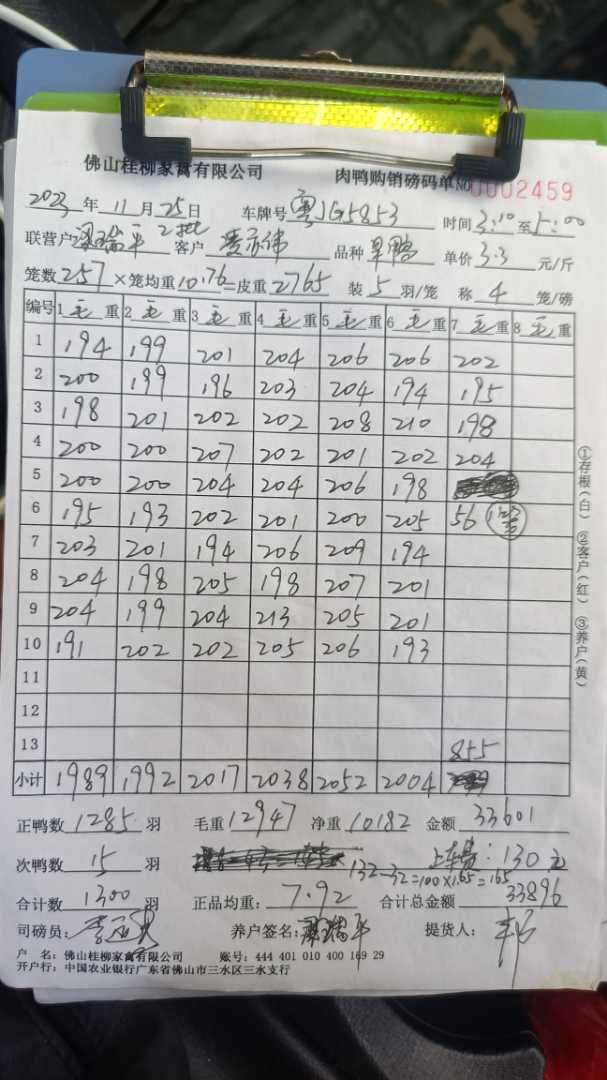 佛山桂柳家禽有限公司 肉鸭购销磅码单 No 0002459
2023 年 11 月 25 日 2批 车牌号 粤JG5853 时间 3:10 至 5:00
联营户 梁瑞平 客户 品种 旱鸭 单价 3.3 元/斤
笼数 257 ×笼均重 10.76 =皮重 2765 装 5 羽/笼 称 4 笼/磅
编号 1 毛 重 2 毛 重 3 毛 重 4 毛 重 5 毛 重 6 毛 重 7 毛 重 8 毛 重
1 194 199 201 204 206 206 202
2 200 199 196 203 204 194 195
3 198 201 202 202 208 210 198
4 200 200 207 202 201 202 204
5 200 200 204 204 206 198
6 195 193 202 201 200 205 56
7 203 201 194 206 209 194
8 204 198 205 198 207 201
9 204 199 204 213 205 201
10 191 202 202 205 206 193
11
12
13 855
小计 1989 1992 2017 2038 2052 2004
正鸭数 1285 羽 毛重 12947 净重 10182 金额 33601
次鸭数 15 羽 132-32=100×1.65=165 上车费:130元
合计数 1300 羽 正品均重: 7.92 合计总金额 33896
司磅员: 养户签名: 梁瑞平 提货人:
户 名: 佛山桂柳家禽有限公司 账号: 444 401 010 400 169 29
开户行: 中国农业银行广东省佛山市三水区三水支行
①存根(白) ②客户(红) ③养户(黄)